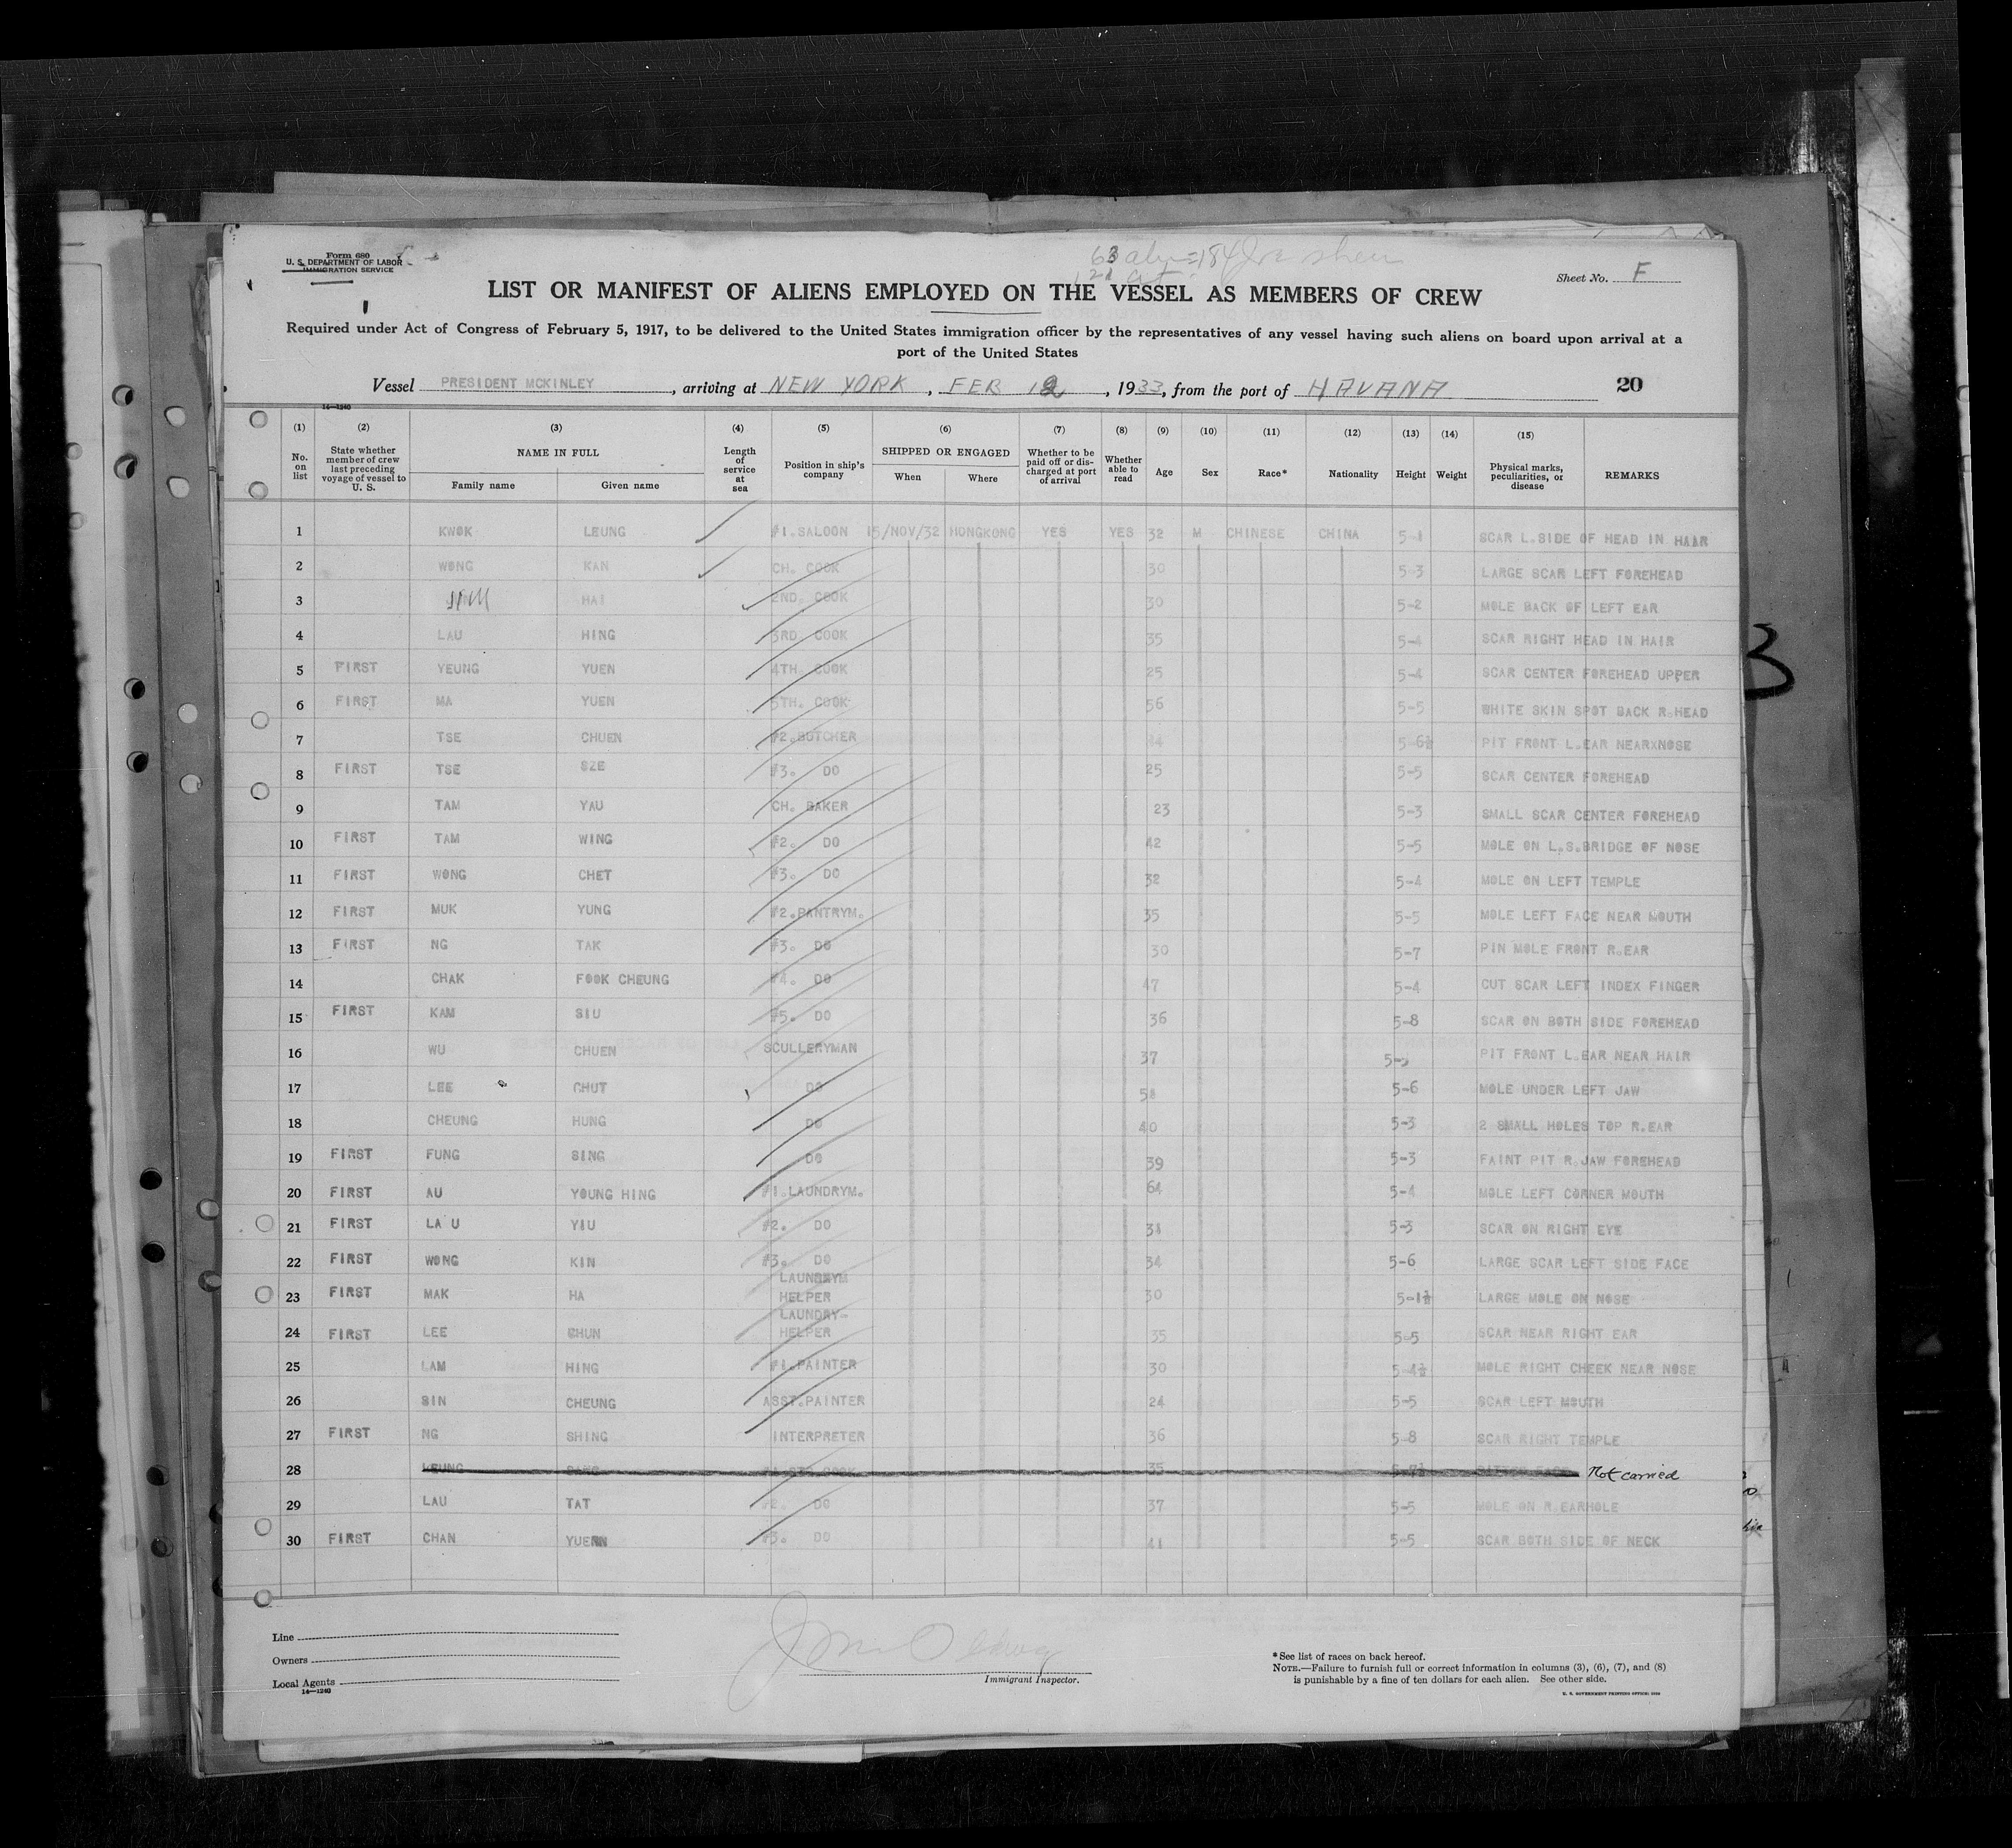 Form 680
U. S. DEPARTMENT OF LABOR
IMMIGRATION SERVICE
Sheet No. F
LIST OR MANIFEST OF ALIENS EMPLOYED ON THE VESSEL AS MEMBERS OF CREW
Required under Act of Congress of February 5, 1917, to be delivered to the United States immigration officer by the representatives of any vessel having such aliens on board upon arrival at a
port of the United States
Vessel PRESIDENT MCKINLEY, arriving at NEW YORK, FEB 12, 1933, from the port of HAVANA 20
14—1240
(1) (2) (3) (4) (5) (6) (7) (8) (9) (10) (11) (12) (13) (14) (15)
No. on list State whether member of crew last preceding voyage of vessel to U. S. NAME IN FULL Family name Given name Length of service at sea Position in ship's company SHIPPED OR ENGAGED When Where Whether to be paid off or discharged at port of arrival Whether able to read Age Sex Race* Nationality Height Weight Physical marks, peculiarities, or disease REMARKS
1 KWOK LEUNG #1.SALOON 15/NOV/32 HONGKONG YES YES 32 M CHINESE CHINA 5-1 SCAR L.SIDE OF HEAD IN HAIR
2 WONG KAN CH. COOK 30 5-3 LARGE SCAR LEFT FOREHEAD
3 HAI 2ND. COOK 30 5-2 MOLE BACK OF LEFT EAR
4 LAU HING 3RD. COOK 35 5-4 SCAR RIGHT HEAD IN HAIR
5 FIRST YEUNG YUEN 4TH. COOK 25 5-4 SCAR CENTER FOREHEAD UPPER
6 FIRST MA YUEN 5TH. COOK 56 5-5 WHITE SKIN SPOT BACK R.HEAD
7 TSE CHUEN #2.BUTCHER 44 5-6½ PIT FRONT L.EAR NEARXNOSE
8 FIRST TSE SZE #3. DO 25 5-5 SCAR CENTER FOREHEAD
9 TAM YAU CH. BAKER 23 5-3 SMALL SCAR CENTER FOREHEAD
10 FIRST TAM WING #2. DO 42 5-5 MOLE ON L.S.BRIDGE OF NOSE
11 FIRST WONG CHET #3. DO 32 5-4 MOLE ON LEFT TEMPLE
12 FIRST MUK YUNG #2.PANTRYM. 35 5-5 MOLE LEFT FACE NEAR MOUTH
13 FIRST NG TAK #3. DO 30 5-7 PIN MOLE FRONT R.EAR
14 CHAK FOOK CHEUNG #4. DO 47 5-4 CUT SCAR LEFT INDEX FINGER
15 FIRST KAM SIU #5. DO 36 5-8 SCAR ON BOTH SIDE FOREHEAD
16 WU CHUEN SCULLERYMAN 37 5-5 PIT FRONT L.EAR NEAR HAIR
17 LEE CHUT DO 58 5-6 MOLE UNDER LEFT JAW
18 CHEUNG HUNG DO 40 5-3 2 SMALL HOLES TOP R.EAR
19 FIRST FUNG SING DO 39 5-3 FAINT PIT R.JAW FOREHEAD
20 FIRST AU YOUNG HING #1.LAUNDRYM. 64 5-4 MOLE LEFT CORNER MOUTH
21 FIRST LA U YIU #2. DO 31 5-3 SCAR ON RIGHT EYE
22 FIRST WONG KIN #3. DO 34 5-6 LARGE SCAR LEFT SIDE FACE
23 FIRST MAK HA LAUNDRYM HELPER 30 5-1½ LARGE MOLE ON NOSE
24 FIRST LEE CHUN LAUNDRY- HELPER 35 5-5 SCAR NEAR RIGHT EAR
25 LAM HING #1.PAINTER 30 5-4½ MOLE RIGHT CHEEK NEAR NOSE
26 SIN CHEUNG ASST.PAINTER 24 5-5 SCAR LEFT MOUTH
27 FIRST NG SHING INTERPRETER 36 5-8 SCAR RIGHT TEMPLE
28 LEUNG 35 5-7½ Not carried
29 LAU TAT #2. DO 37 5-5 MOLE ON R.EARHOLE
30 FIRST CHAN YUENN #3. DO 41 5-5 SCAR BOTH SIDE OF NECK
Line
Owners
Local Agents
14—1240
Immigrant Inspector.
*See list of races on back hereof.
NOTE.—Failure to furnish full or correct information in columns (3), (6), (7), and (8)
is punishable by a fine of ten dollars for each alien. See other side.